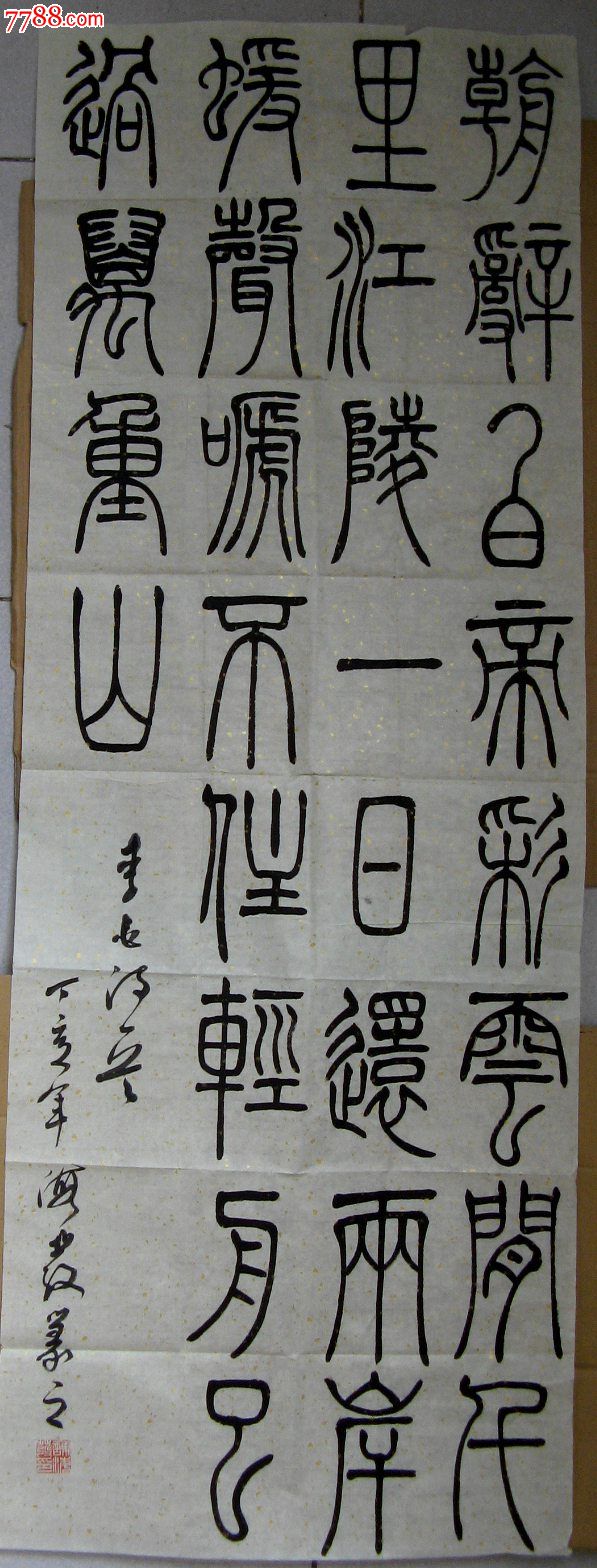 7788.com
朝辭白帝彩雲間千
里江陵一日還兩岸
蝯聲嗁不住輕舟已
過萬重山
李白詩一首
丁亥年